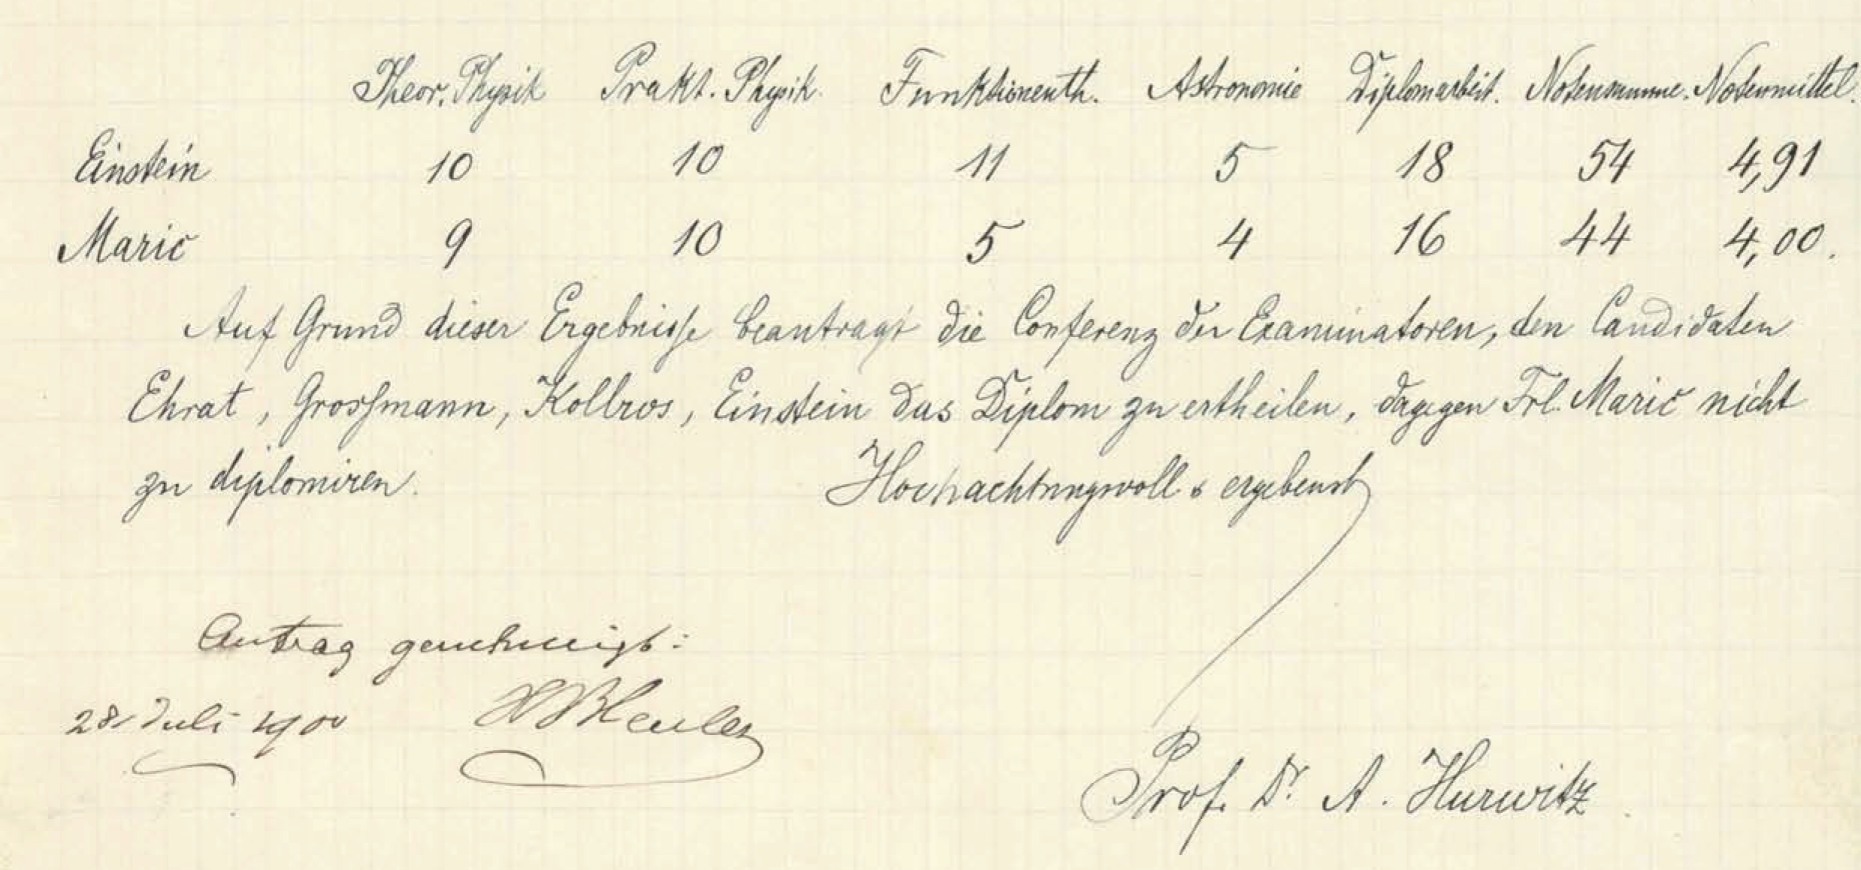 Theor. Physik Prakt. Physik. Funktionenth. Astronomie Diplomarbeit. Notensumme. Notenmittel.
Einstein 10 10 11 5 18 54 4,91
Marič 9 10 5 4 16 44 4,00.
Auf Grund dieser Ergebnisse beantragt die Conferenz der Examinatoren, den Candidaten
Ehrat, Grossmann, Kollros, Einstein das Diplom zu ertheilen, dagegen Frl. Marič nicht
zu diplomiren.
Hochachtungsvoll & ergebenst
Antrag genehmigt:
28. Juli 1900 H Bleuler
Prof. Dr. A. Hurwitz.